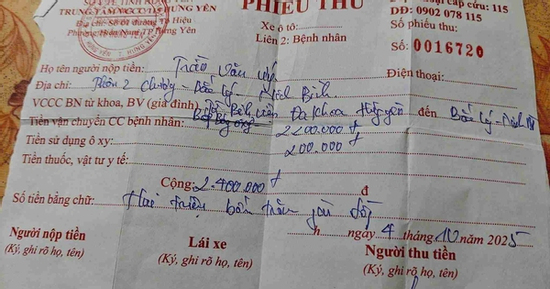 PHIẾU THU
TRUNG TÂM CC 115 HƯNG YÊN
Địa chỉ: Số 01 đường Tô Hiệu
Phường Hiến Nam TP Hưng Yên
cấp cứu: 115
DĐ: 0902 078 115
Xe ô tô:
Số phiếu thu:
Liên 2: Bệnh nhân
Số: 0016720
Họ tên người nộp tiền: Trần Văn
Điện thoại:
Địa chỉ: Thôn 2
VCCC BN từ khoa, BV (gia đình) Đa khoa đến
Tiền vận chuyển CC bệnh nhân: 2200.000 đ
Tiền sử dụng ô xy: 200.000
Tiền thuốc, vật tư y tế:
Cộng: 2.400.000 đ đ
Số tiền bằng chữ: Hai triệu bốn trăm
h ngày 4 tháng 10 năm 2025
Người nộp tiền Lái xe Người thu tiền
(Ký, ghi rõ họ, tên) (Ký, ghi rõ họ, tên) (Ký, ghi rõ họ, tên)